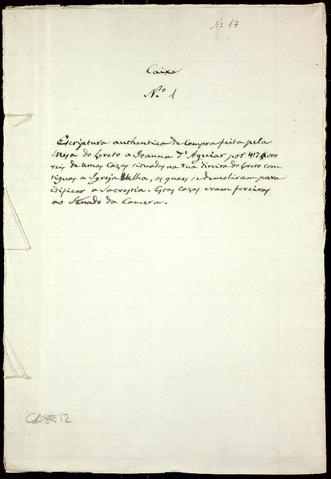 Nº 17
Caixa
N.º 1
Escriptura authentica de Compra feita pela
Meza do Loreto a Joanna d'Aguiar por 417$000
reis de umas Cazas situadas na rua direita do Loreto con-
tiguas a Igreja Velha, as quaes se demoliram para
edificar a Sacrestia. Estas cazas eram foreiras
ao Senado da Camera.
12